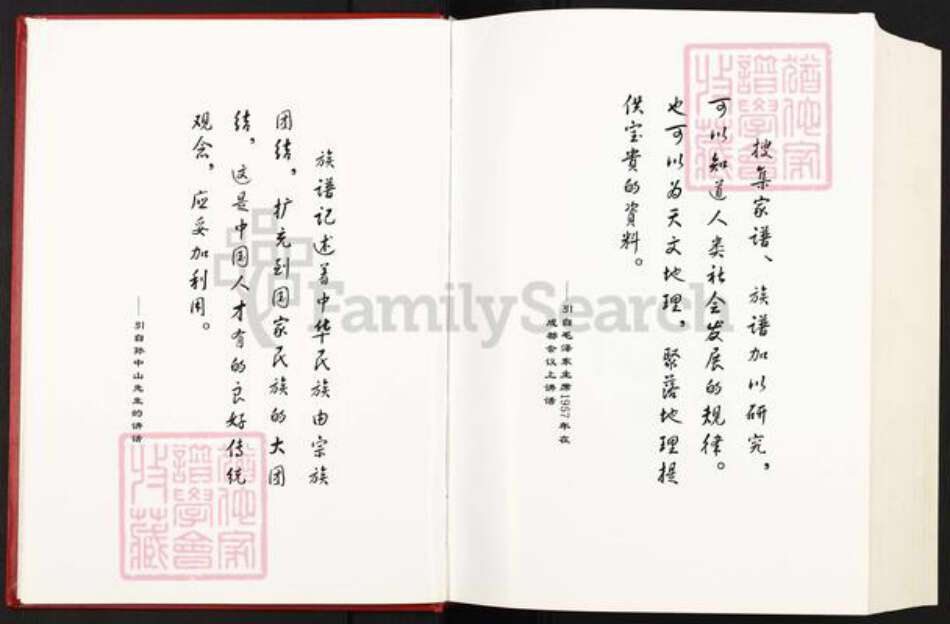 搜集家谱、族谱加以研究，
可以知道人类社会发展的规律。
也可以为天文地理，聚落地理提
供宝贵的資料。
——引自毛泽东主席1957年在
成都会议上讲话
族谱记述着中华民族由宗族
团结，扩充到国家民族的大团
结，这是中国人才有的良好传统
观念，应妥加利用。
——引自孙中山先生的讲话
猶他家
譜學會
收藏
猶他家
譜學會
收藏
FamilySearch